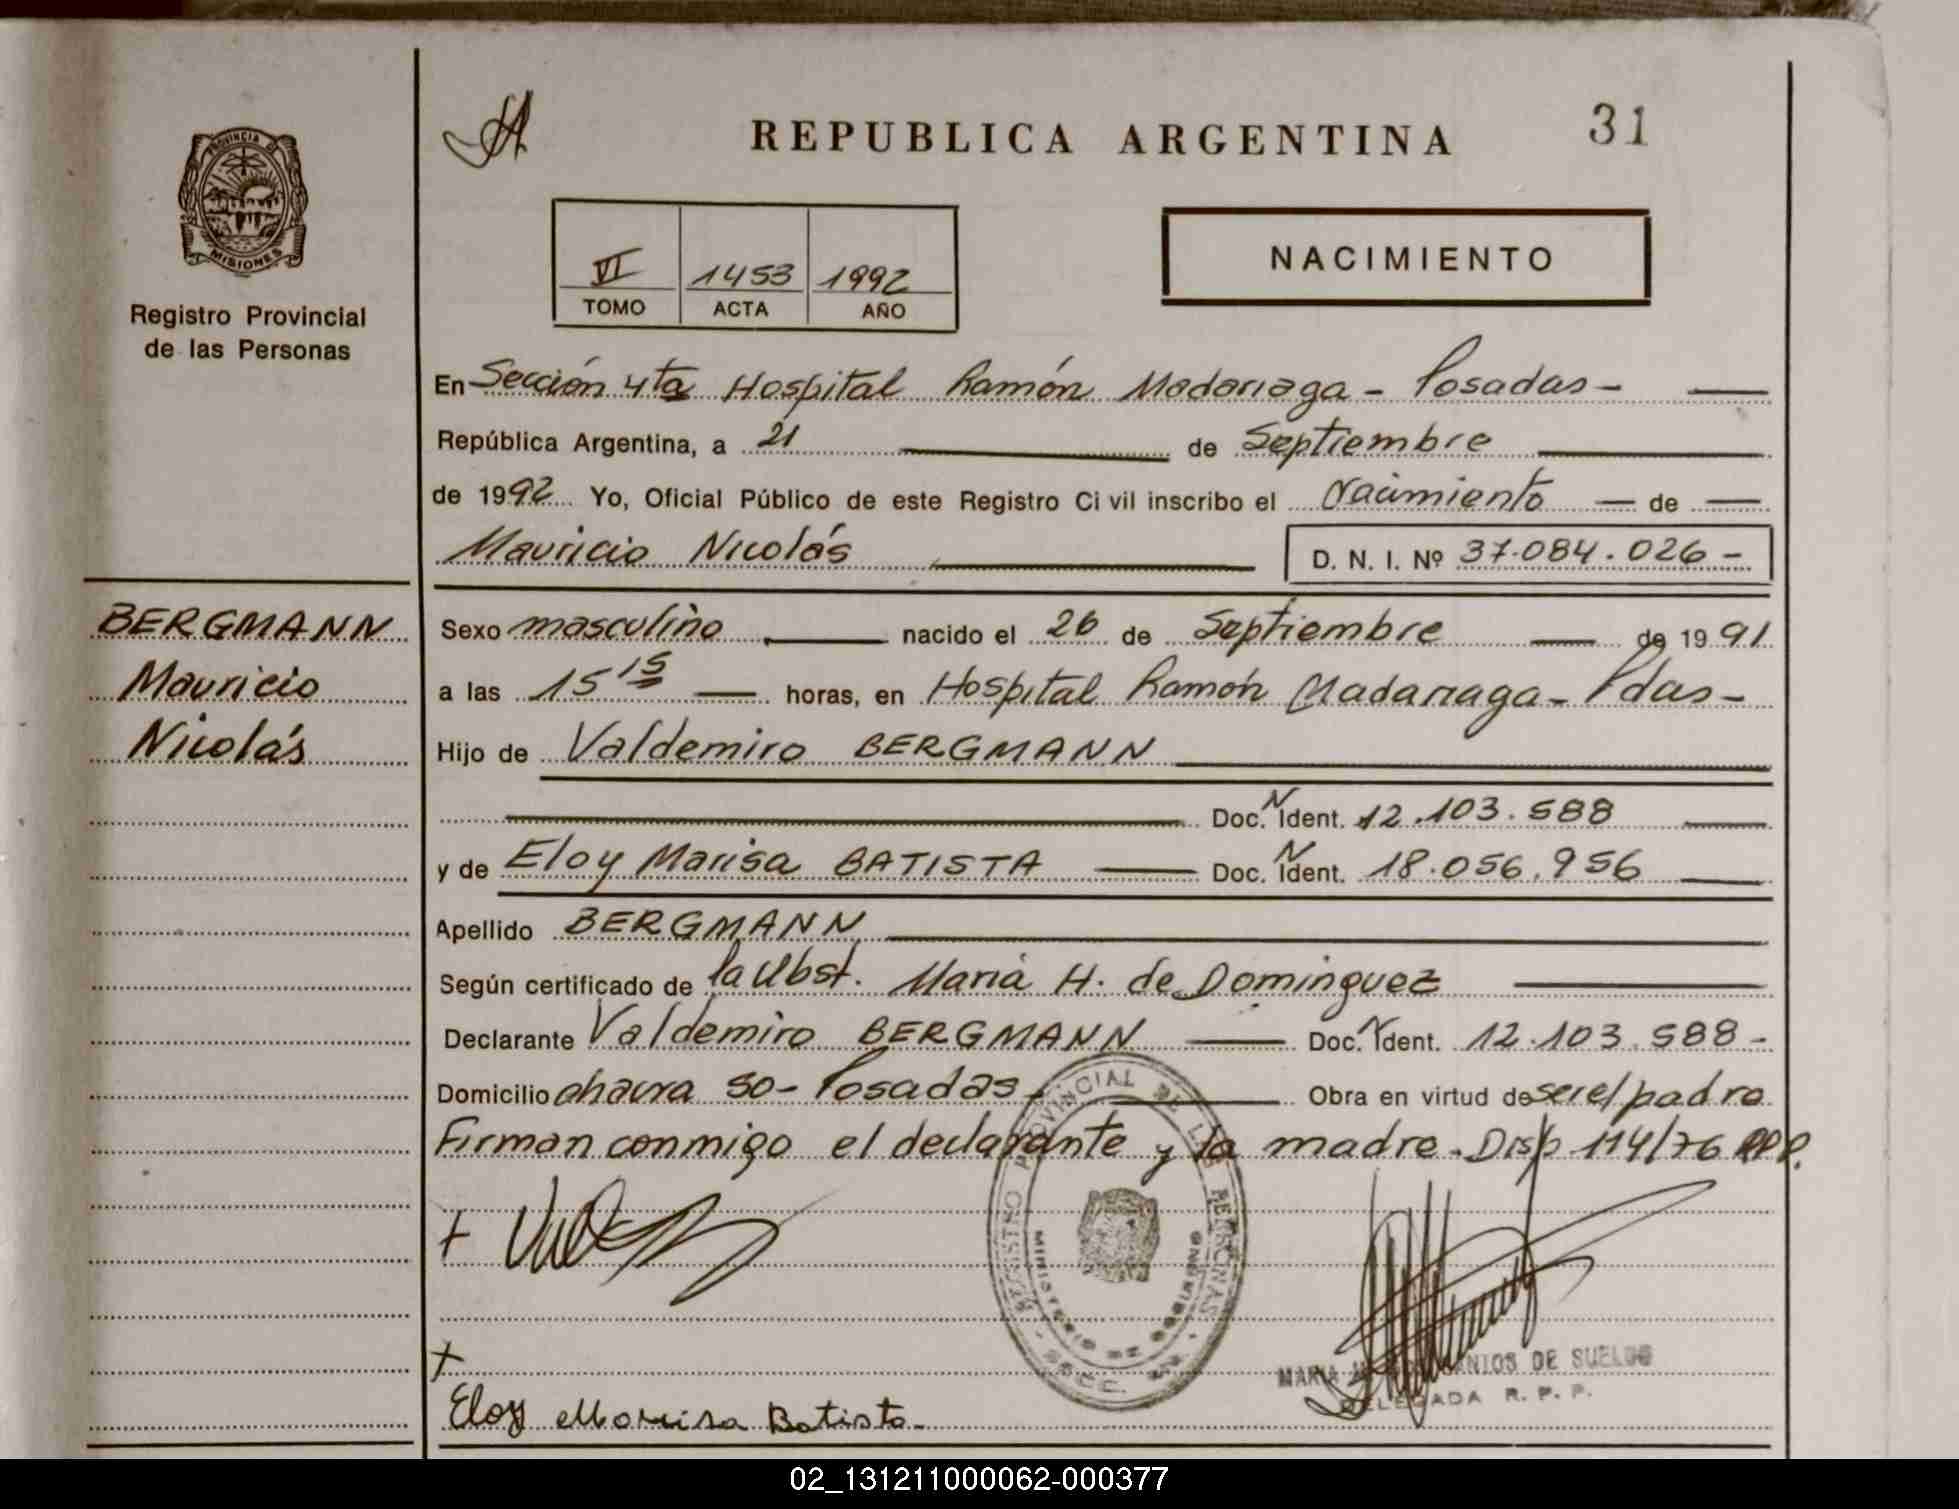 REPUBLICA ARGENTINA
31
PROVINCIA DE
MISIONES
Registro Provincial
de las Personas
VI 1453 1992
TOMO ACTA AÑO
NACIMIENTO
En Sección 4ta Hospital Ramón Madariaga - Posadas -
República Argentina, a 21 de Septiembre
de 1992 Yo, Oficial Público de este Registro Civil inscribo el Nacimiento de
Mauricio Nicolás D. N. I. Nº 37.084.026 -
BERGMANN
Mauricio
Nicolás
Sexo masculino nacido el 26 de Septiembre de 1991
a las 15 15 horas, en Hospital Ramón Madariaga - Pdas -
Hijo de Valdemiro BERGMANN
Doc. N Ident. 12.103.588
y de Eloy Marisa BATISTA Doc. N Ident. 18.056.956
Apellido BERGMANN
Según certificado de la Obst. María H. de Dominguez
Declarante Valdemiro BERGMANN Doc. N Ident. 12.103.588 -
Domicilio chacra 50 - Posadas - Obra en virtud de ser el padre
Firman conmigo el declarante y la madre. Disp 114/76 RPP.
REGISTRO PROVINCIAL DE LAS PERSONAS
MINISTERIO DE GOBIERNO
MARIA SANTOS DE SUELDO
DELEGADA R. P. P.
Eloy Marisa Batista
02_131211000062-000377